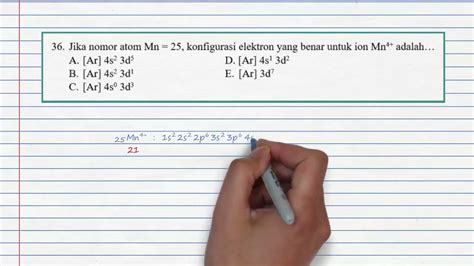 36. Jika nomor atom Mn = 25, konfigurasi elektron yang benar untuk ion Mn⁴⁺ adalah…
A. [Ar] 4s² 3d⁵ D. [Ar] 4s¹ 3d²
B. [Ar] 4s² 3d¹ E. [Ar] 3d⁷
C. [Ar] 4s⁰ 3d³
₂₅Mn⁴⁺ : 1s² 2s² 2p⁶ 3s² 3p⁶ 4s
21